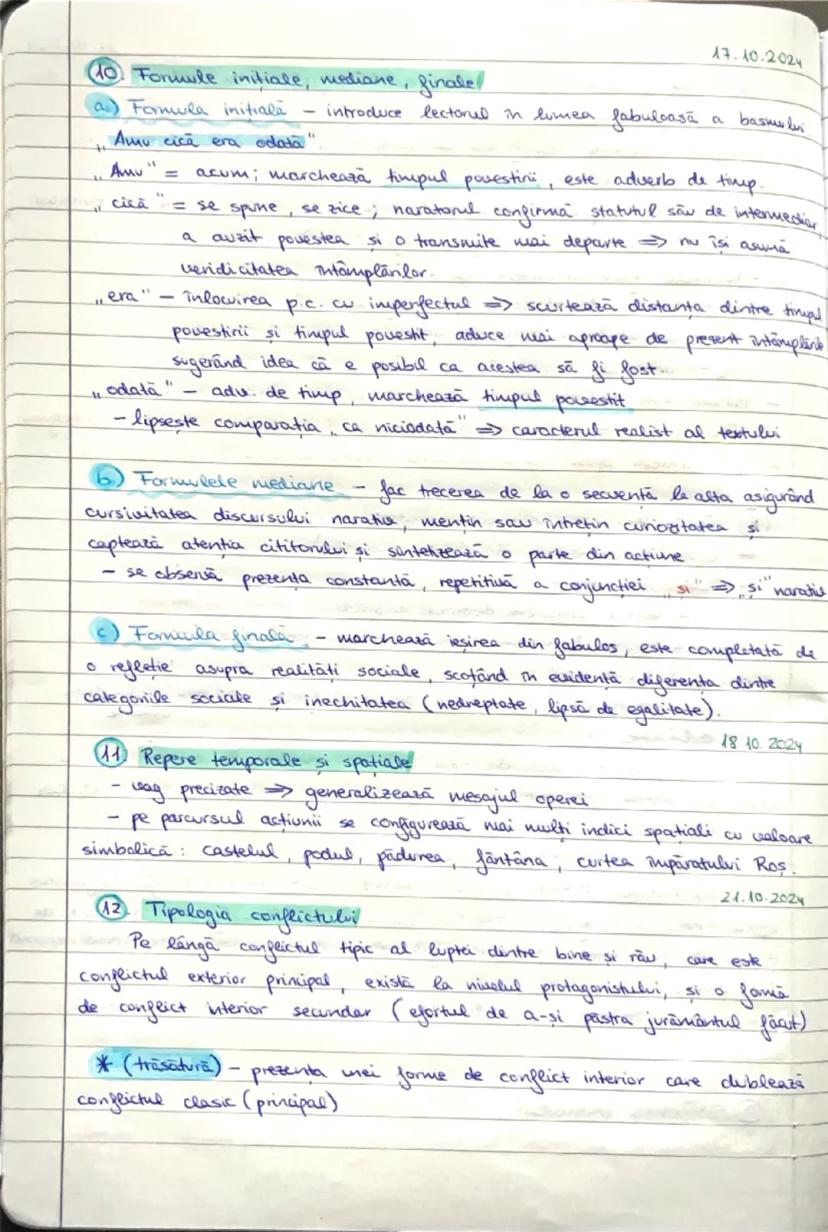 17.10.2024
10. Formule inițiale, mediane, finale
a.) Formula inițială – introduce lectorul în lumea fabuloasă a basmului
„Amu cică era odată".
„Amu" = acum; marchează timpul povestirii, este adverb de timp.
„cică" = se spune, se zice; naratorul confirmă statutul său de intermediar,
a auzit povestea și o transmite mai departe => nu își asumă
veridicitatea întâmplărilor.
„era" – înlocuirea p.c. cu imperfectul => scurtează distanța dintre timpul
povestirii și timpul povestit, aduce mai aproape de prezent întâmplările
sugerând idea că e posibil ca acestea să fi fost.
„odată" – adv. de timp, marchează timpul povestit
– lipsește comparația „ca niciodată" => caracterul realist al textului
b.) Formulele mediane – fac trecerea de la o secvență la alta asigurând
cursivitatea discursului narativ, mențin sau întrețin curiozitatea și
captează atenția cititorului și sintetizează o parte din acțiune
– se observă prezența constantă, repetitivă a conjuncției „și" => „și" narativ
c.) Formula finală – marchează ieșirea din fabulos, este completată de
o reflecție asupra realității sociale, scoțând în evidență diferența dintre
categoriile sociale și inechitatea (nedreptate, lipsă de egalitate).
18.10.2024
11. Repere temporale și spațiale
– vag precizate => generalizează mesajul operei
– pe parcursul acțiunii se configurează mai mulți indici spațiali cu valoare
simbolică: castelul, podul, pădurea, fântâna, curtea împăratului Roș.
21.10.2024
12. Tipologia conflictului
Pe lângă conflictul tipic al luptei dintre bine și rău, care este
conflictul exterior principal, există la nivelul protagonistului, și o formă
de conflict interior secundar (efortul de a-și păstra jurământul făcut)
* (trăsătură) – prezența unei forme de conflict interior care dublează
conflictul clasic (principal)